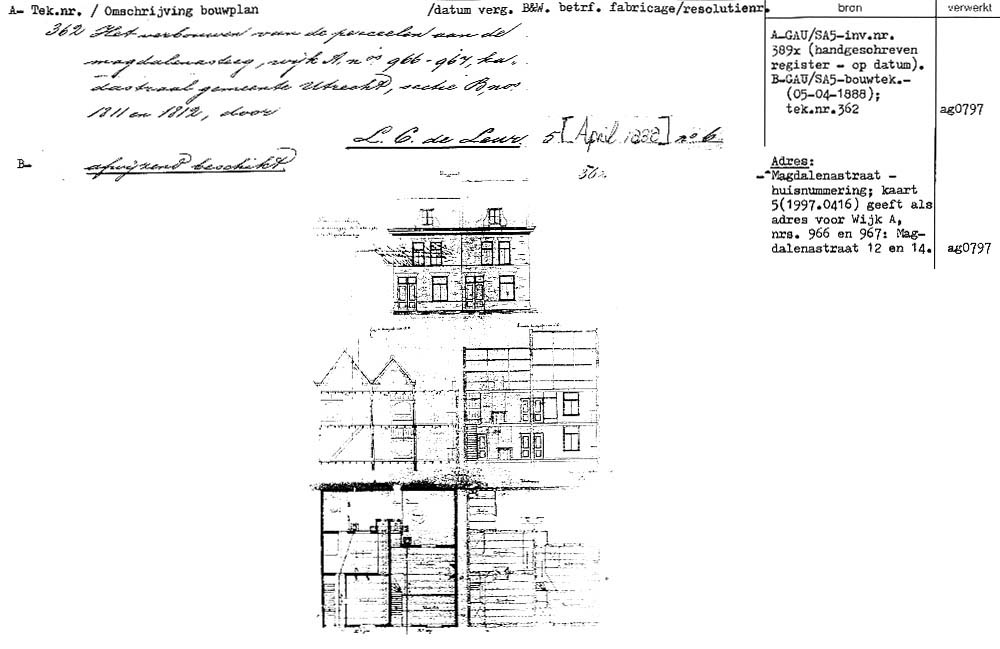 A- Tek.nr. / Omschrijving bouwplan /datum verg. B&W. betrf. fabricage/resolutienr.
362 Het verbouwen van de perceelen aan de
magdalenasteeg, wijk A, nos 966-967, ka-
dastraal gemeente Utrecht, sectie B, nos
1811 en 1812, door
L. C. de Leur. 5 [April 1888] no 6.
B- afwijzend beschikt
362.
bron
A-GAU/SA5-inv.nr.
389x (handgeschreven
register - op datum).
B-GAU/SA5-bouwtek.-
(05-04-1888);
tek.nr.362
Adres:
-Magdalenastraat -
huisnummering; kaart
5(1997.0416) geeft als
adres voor Wijk A,
nrs. 966 en 967: Mag-
dalenastraat 12 en 14.
verwerkt
ag0797
ag0797